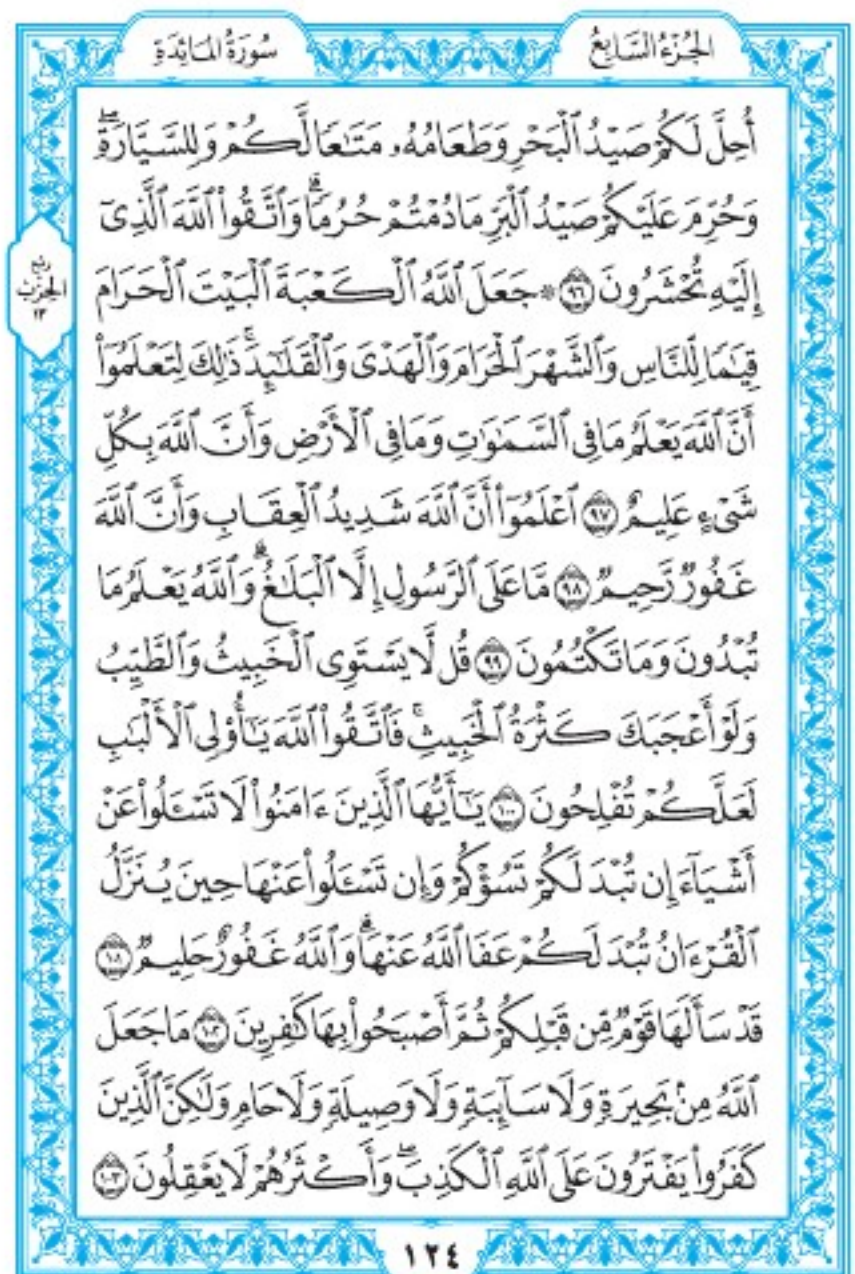 الجُزْءُ السَّابِعُ
سُورَةُ المَائِدَةِ
أُحِلَّ لَكُمْ صَيْدُ ٱلْبَحْرِ وَطَعَامُهُۥ مَتَٰعًا لَّكُمْ وَلِلسَّيَّارَةِۖ
وَحُرِّمَ عَلَيْكُمْ صَيْدُ ٱلْبَرِّ مَا دُمْتُمْ حُرُمًاۗ وَٱتَّقُوا۟ ٱللَّهَ ٱلَّذِىٓ
إِلَيْهِ تُحْشَرُونَ ٩٦ ۞ جَعَلَ ٱللَّهُ ٱلْكَعْبَةَ ٱلْبَيْتَ ٱلْحَرَامَ
ربع
الحزب
١٣
قِيَٰمًا لِّلنَّاسِ وَٱلشَّهْرَ ٱلْحَرَامَ وَٱلْهَدْىَ وَٱلْقَلَٰٓئِدَۚ ذَٰلِكَ لِتَعْلَمُوٓا۟
أَنَّ ٱللَّهَ يَعْلَمُ مَا فِى ٱلسَّمَٰوَٰتِ وَمَا فِى ٱلْأَرْضِ وَأَنَّ ٱللَّهَ بِكُلِّ
شَىْءٍ عَلِيمٌ ٩٧ ٱعْلَمُوٓا۟ أَنَّ ٱللَّهَ شَدِيدُ ٱلْعِقَابِ وَأَنَّ ٱللَّهَ
غَفُورٌ رَّحِيمٌ ٩٨ مَّا عَلَى ٱلرَّسُولِ إِلَّا ٱلْبَلَٰغُۗ وَٱللَّهُ يَعْلَمُ مَا
تُبْدُونَ وَمَا تَكْتُمُونَ ٩٩ قُل لَّا يَسْتَوِى ٱلْخَبِيثُ وَٱلطَّيِّبُ
وَلَوْ أَعْجَبَكَ كَثْرَةُ ٱلْخَبِيثِۚ فَٱتَّقُوا۟ ٱللَّهَ يَٰٓأُو۟لِى ٱلْأَلْبَٰبِ
لَعَلَّكُمْ تُفْلِحُونَ ١٠٠ يَٰٓأَيُّهَا ٱلَّذِينَ ءَامَنُوا۟ لَا تَسْـَٔلُوا۟ عَنْ
أَشْيَآءَ إِن تُبْدَ لَكُمْ تَسُؤْكُمْ وَإِن تَسْـَٔلُوا۟ عَنْهَا حِينَ يُنَزَّلُ
ٱلْقُرْءَانُ تُبْدَ لَكُمْ عَفَا ٱللَّهُ عَنْهَاۗ وَٱللَّهُ غَفُورٌ حَلِيمٌ ١٠١
قَدْ سَأَلَهَا قَوْمٌ مِّن قَبْلِكُمْ ثُمَّ أَصْبَحُوا۟ بِهَا كَٰفِرِينَ ١٠٢ مَا جَعَلَ
ٱللَّهُ مِنۢ بَحِيرَةٍ وَلَا سَآئِبَةٍ وَلَا وَصِيلَةٍ وَلَا حَامٍ وَلَٰكِنَّ ٱلَّذِينَ
كَفَرُوا۟ يَفْتَرُونَ عَلَى ٱللَّهِ ٱلْكَذِبَۖ وَأَكْثَرُهُمْ لَا يَعْقِلُونَ ١٠٣
١٢٤